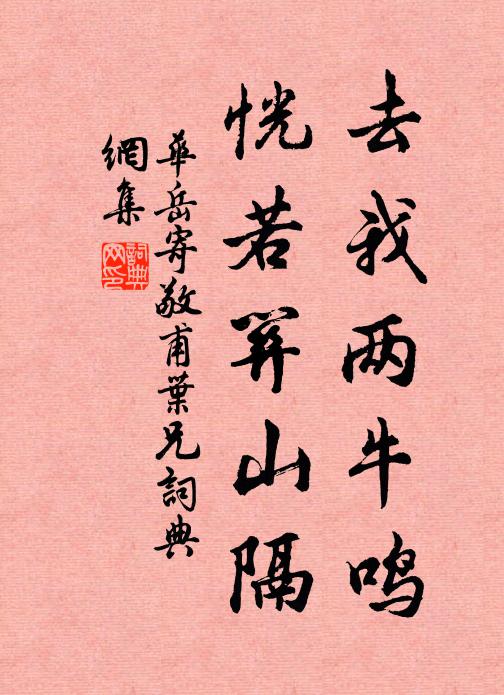 去我两牛鸣
恍若关山隔
華岳寄敬甫葉兄詞典
網集
詞典
网印